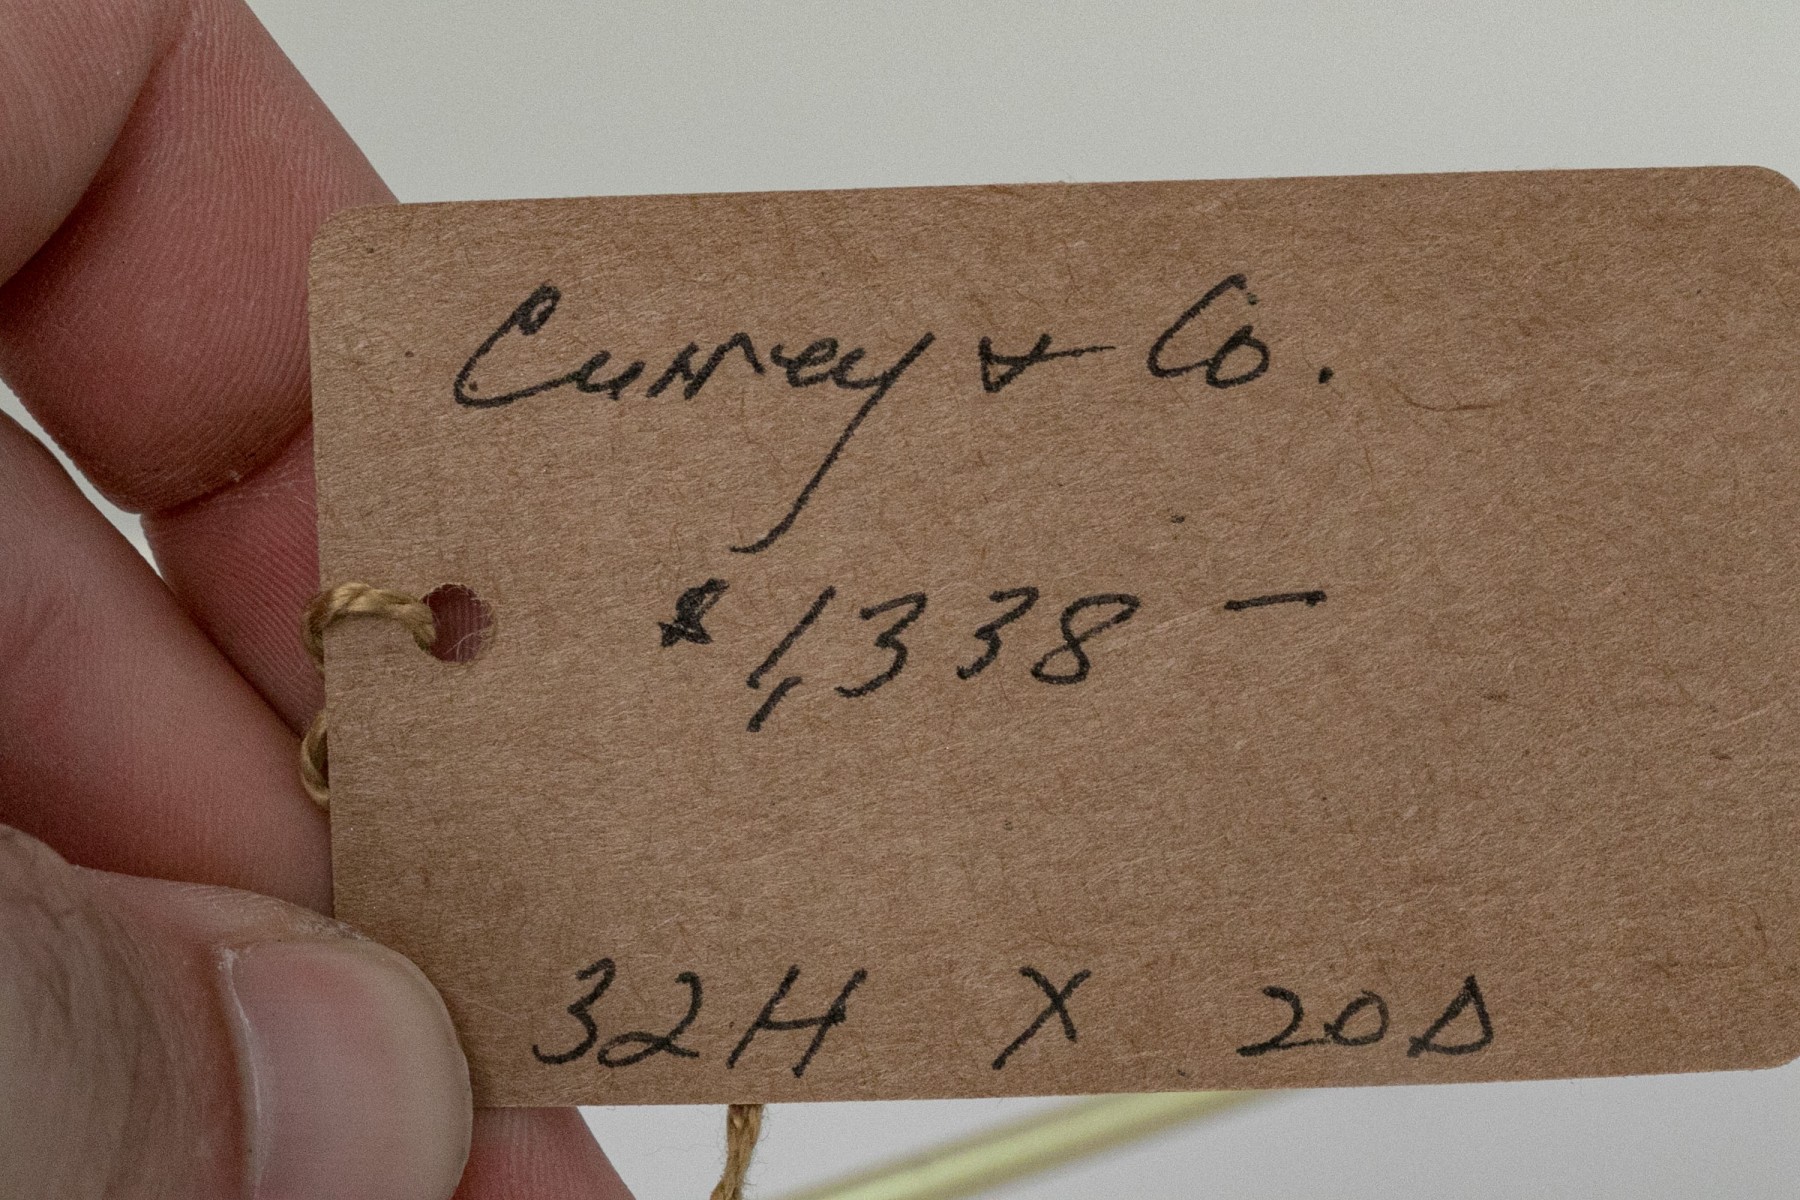 Currey & Co.
$1,338 –
32H X 20D